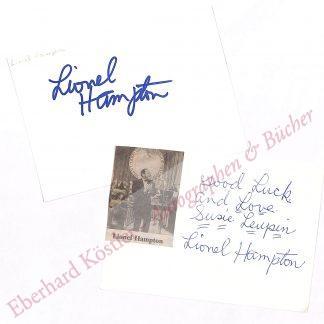 Lionel Hampton
Lionel
Hampton
Good Luck
and Love
Susie Leupin
Lionel Hampton
Lionel Hampton
Eberhard Köstler Autographen & Bücher